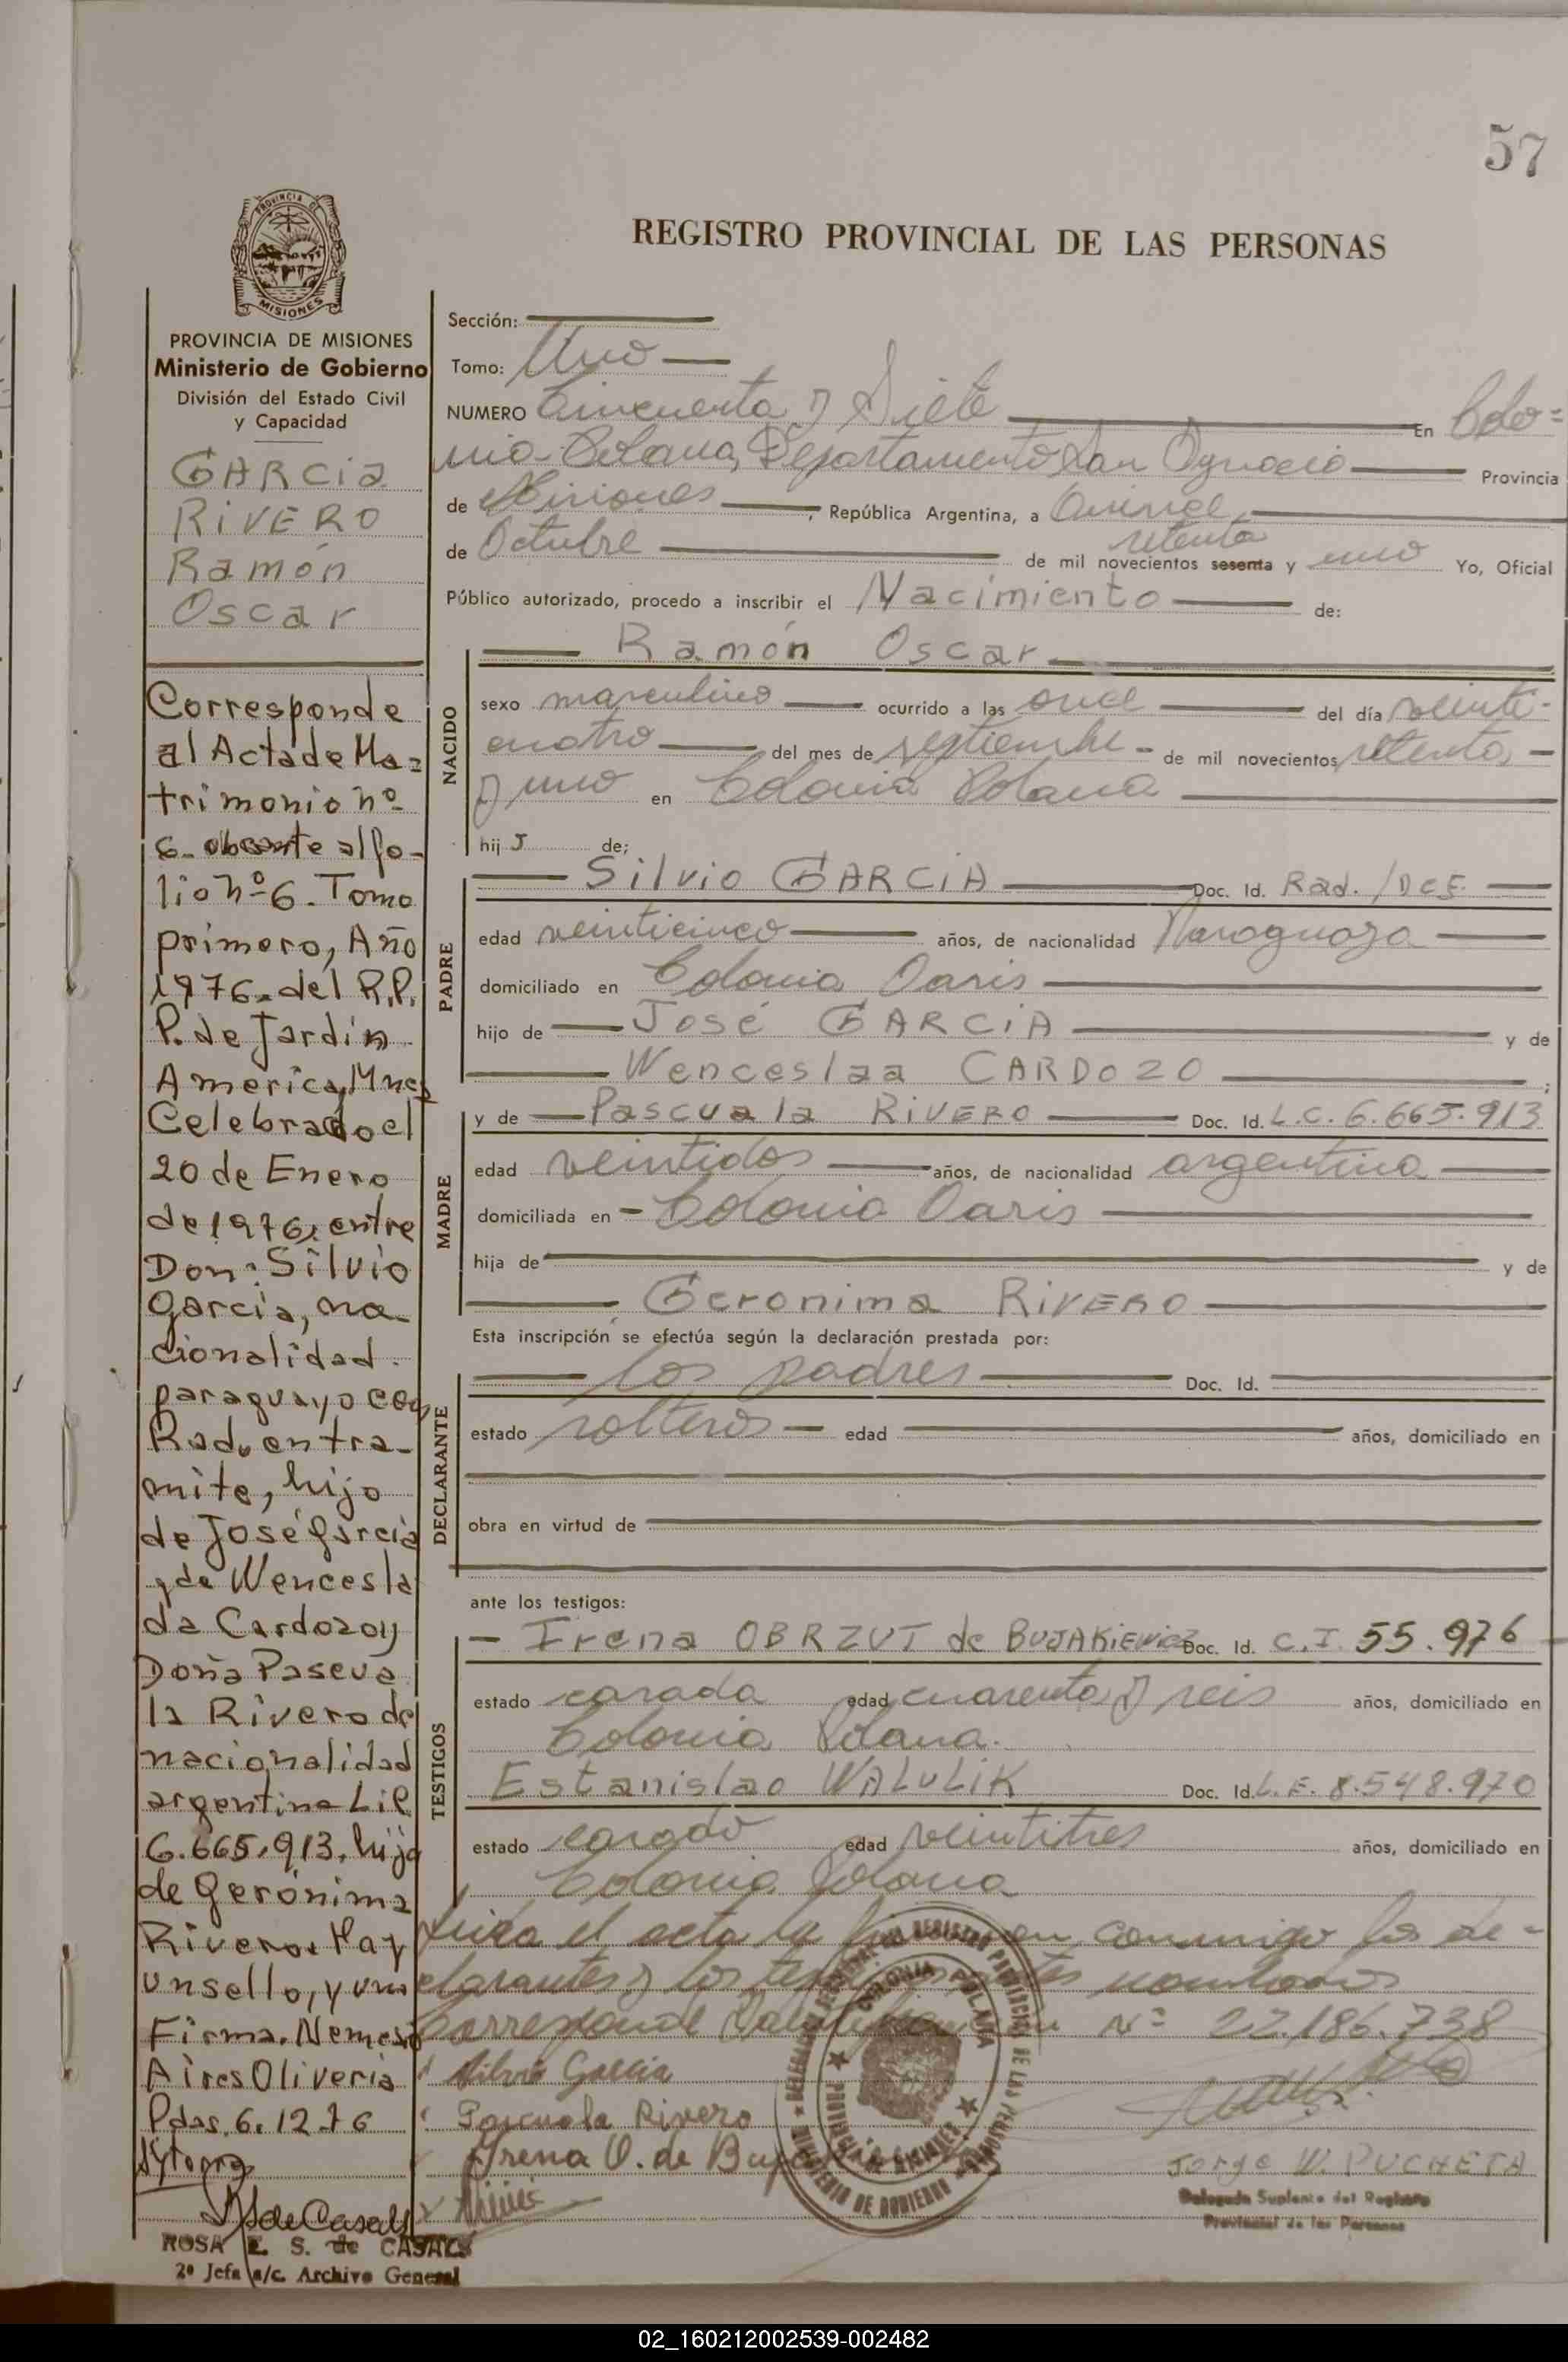 57
PROVINCIA DE
MISIONES
REGISTRO PROVINCIAL DE LAS PERSONAS
PROVINCIA DE MISIONES
Ministerio de Gobierno
División del Estado Civil
y Capacidad
GARCia
RiVERO
Ramón
Oscar
Corresponde
al Acta de Ma=
trimonio nº
6. obrante al fo-
lio nº 6. Tomo
primero, Año
1976. del R.P.
P. de Jardin
America, Mnes
Celebrado el
20 de Enero
de 1976, entre
Don: Silvio
Garcia, na
cionalidad.
paraguayo con
Rad. en tra-
mite, hijo
de José Garcia
y de Wencesla
da Cardozo y
Doña Pascua
la Rivero de
nacionalidad
argentina L.C.
6.665.913. hija
de Gerónima
Rivero. Hay
un sello, y una
Firma. Nemesio
Aires Oliveria
Pdas. 6. 12 76
ROSA E. S. de CASALS
2º Jefa a/c. Archivo General
Sección:
Tomo: Uno
NUMERO Cincuenta y Siete En Colo=
nia Polana, Departamento San Ignacio Provincia
de Misiones, República Argentina, a Quince
de Octubre de mil novecientos sesenta setenta y uno Yo, Oficial
Público autorizado, procedo a inscribir el Nacimiento de:
Ramón Oscar
NACIDO
sexo masculino ocurrido a las once del día veinti-
cuatro del mes de septiembre de mil novecientos setenta
y uno en Colonia Polana
hij o de;
PADRE
Silvio GARCIA Doc. Id. Rad. /DCF.
edad veinticinco años, de nacionalidad Paraguaya
domiciliado en Colonia Oasis
hijo de José GARCIA y de
Wenceslaa CARDOZO;
MADRE
y de Pascuala RIVERO Doc. Id. L.C. 6.665.913
edad veintidos años, de nacionalidad argentina
domiciliada en Colonia Oasis
hija de y de
Geronima RIVERO
Esta inscripción se efectúa según la declaración prestada por:
DECLARANTE
los padres Doc. Id.
estado solteros edad años, domiciliado en
obra en virtud de
ante los testigos:
TESTIGOS
Irena OBRZUT de BUJAKIEWICZ Doc. Id. C.I. 55.976
estado casada edad cuarenta y seis años, domiciliado en
Colonia Polana.
Estanislao WALULIK Doc. Id. L.E. 8.548.970
estado casado edad veintitres años, domiciliado en
Colonia Polana
Leida el acta la firman conmigo los de-
clarantes y los testigos antes nombrados
Corresponde Nº 22.186.738
Silvio Garcia
Pascuala Rivero
Irena O. de
COLONIA POLANA
PROVINCIA MISIONES
MINISTERIO DE GOBIERNO
Jorge W. PUCHETA
Delegado Suplente del Registro
Provincial de las Personas
02_160212002539-002482